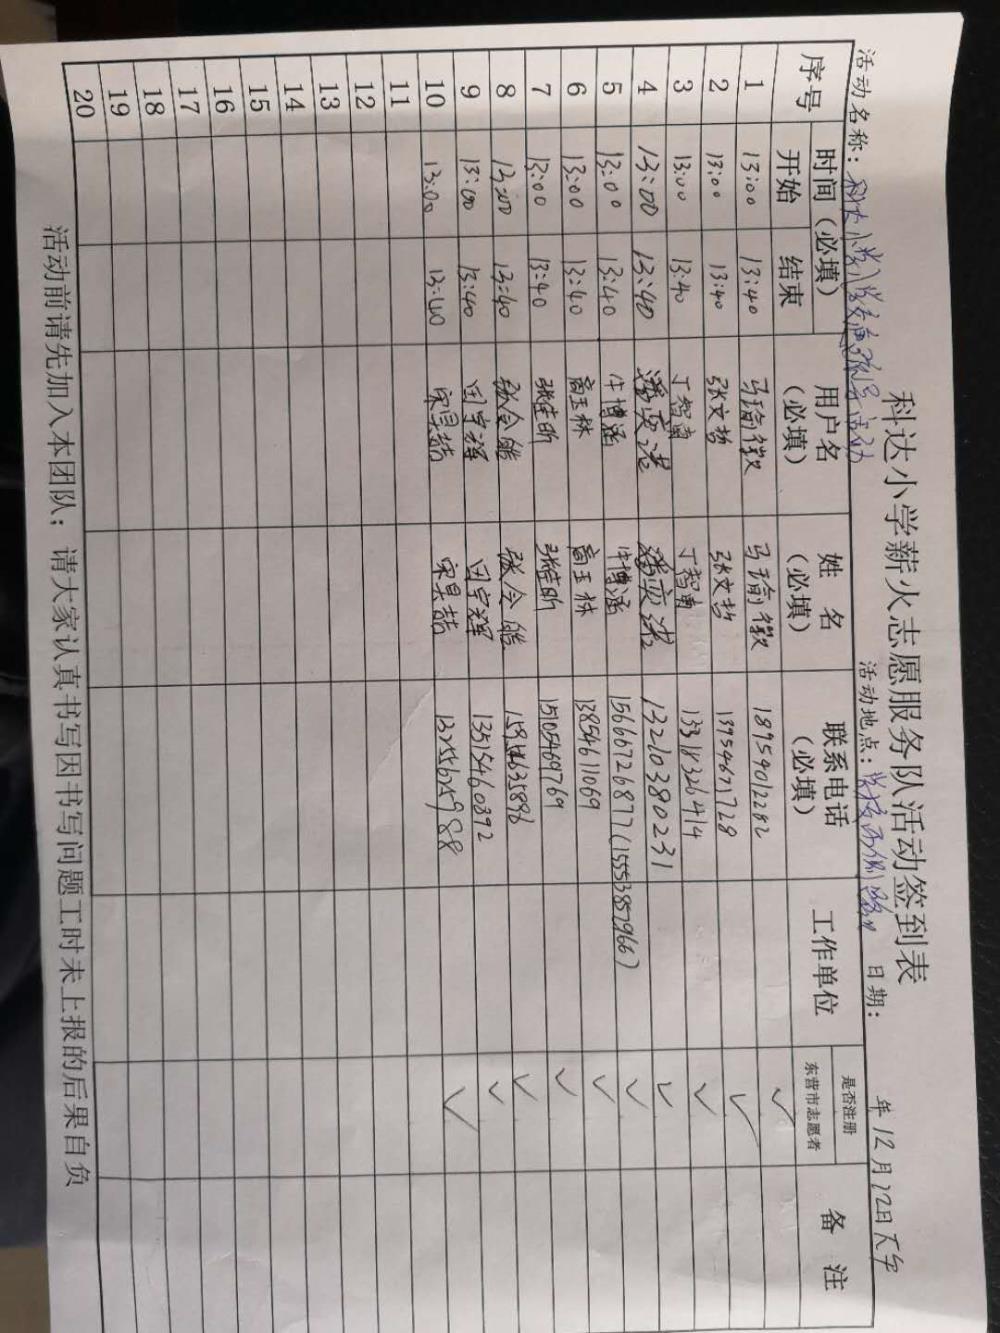 科达小学薪火志愿服务队活动签到表
活动名称： 活动地点： 日期： 年12月12日
序号 时间（必填） 用户名（必填） 姓 名（必填） 联系电话（必填） 工作单位 是否注册东营市志愿者 备 注
开始 结束
1 13:00 13:40 马瑜徽 马瑜徽 18954012282 ✓
2 13:00 13:40 张文哲 张文哲 13954671728 ✓
3 13:00 13:40 丁智 丁智 13318326414 ✓
4 13:00 13:40 潘奕 潘奕 13210380231 ✓
5 13:00 13:40 牛博涵 牛博涵 15666726877(15553872966) ✓
6 13:00 13:40 商玉林 商玉林 13854611069 ✓
7 13:00 13:40 张佳昕 张佳昕 15105469769 ✓
8 13:00 13:40 张令皓 张令皓 ✓
9 13:00 13:40 田宇辉 田宇辉 13515460892 ✓
10 13:00 13:40 宋昊喆 宋昊喆 13255625988 ✓
11
12
13
14
15
16
17
18
19
20
活动前请先加入本团队；请大家认真书写因书写问题工时未上报的后果自负